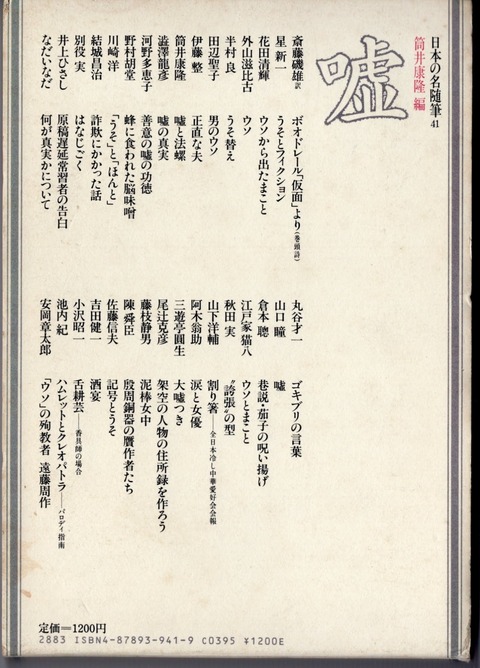 日本の名随筆 41
筒井康隆 編
嘘
斎藤磯雄訳 ボオドレール「仮面」より(巻頭詩)
星 新一 うそとフィクション
花田清輝 ウソから出たまこと
外山滋比古 ウソ
半村 良 うそ替え
田辺聖子 男のウソ
伊藤 整 正直な夫
筒井康隆 嘘と法螺
澁澤龍彥 嘘の真実
河野多恵子 善意の嘘の功徳
野村胡堂 蜂に食われた脳味噌
川崎 洋 「うそ」と「ほんと」
結城昌治 詐欺にかかった話
別役 実 はなじごく
井上ひさし 原稿遅延常習者の告白
なだいなだ 何が真実かについて
丸谷才一 ゴキブリの言葉
山口 瞳 嘘
倉本 聰 巷説・茄子の呪い揚げ
江戸家猫八 ウソとまこと
秋田 実 “誇張”の型
山下洋輔 割り箸——全日本冷し中華愛好会会報
阿木翁助 涙と女優
三遊亭圓生 大嘘つき
尾辻克彦 架空の人物の住所録を作ろう
藤枝静男 泥棒女中
陳 舜臣 殷周銅器の贋作者たち
佐藤信夫 記号とうそ
吉田健一 酒宴
小沢昭一 舌耕芸——香具師の場合
池内 紀 ハムレットとクレオパトラ——パロディ指南
安岡章太郎 「ウソ」の殉教者 遠藤周作
定価=1200円
2883 ISBN4-87893-941-9 C0395 ¥1200E